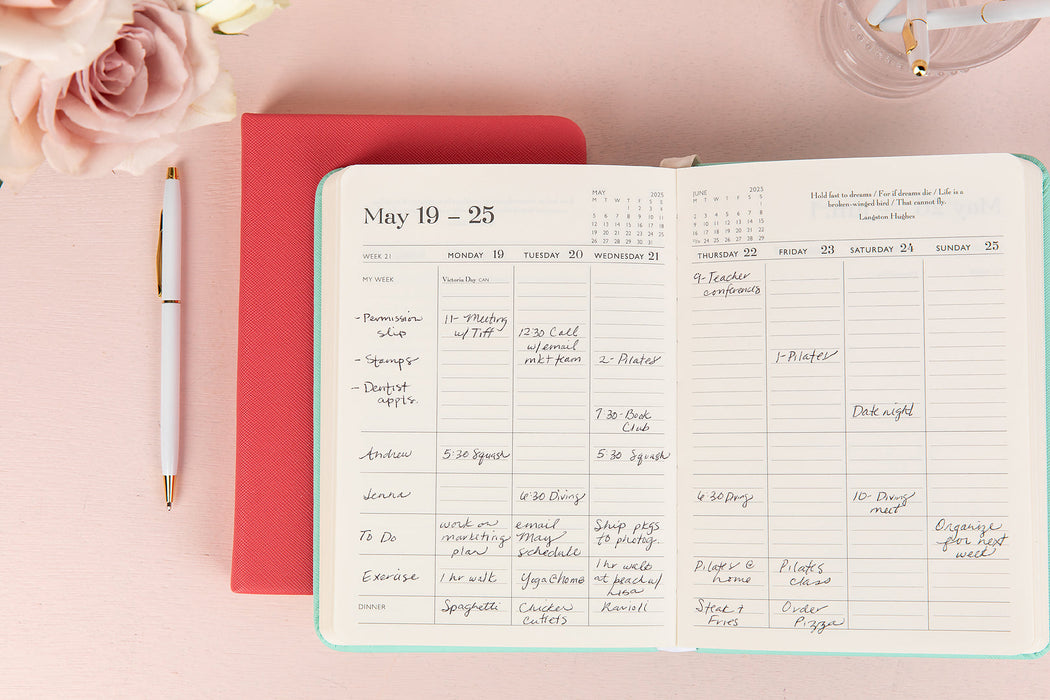 May 19 – 25
MAY 2025
M T W T F S S
1 2 3 4
5 6 7 8 9 10 11
12 13 14 15 16 17 18
19 20 21 22 23 24 25
26 27 28 29 30 31
WEEK 21
MONDAY 19
TUESDAY 20
WEDNESDAY 21
MY WEEK
Victoria Day CAN
- Permission
slip
- Stamps
- Dentist
appts.
11- Meeting
w/ Tiff
12 30 Call
w/email
mkt team
2- Pilates
7 30- Book
Club
Andrew
5:30 Squash
5 30 Squash
Jenna
6:30 Diving
To Do
work on
marketing
plan
email
May
schedule
Ship pkgs
to photog.
Exercise
1 hr walk
Yoga @ home
1 hr walk
at beach w/
Lisa
DINNER
Spaghetti
Chicken
cutlets
Ravioli
JUNE 2025
M T W T F S S
1
2 3 4 5 6 7 8
9 10 11 12 13 14 15
16 17 18 19 20 21 22
24 25 26 27 28 29
Hold fast to dreams / For if dreams die / Life is a
broken-winged bird / That cannot fly.
Langston Hughes
THURSDAY 22
FRIDAY 23
SATURDAY 24
SUNDAY 25
9- Teacher
conferences
1- Pilates
Date night
6:30 Diving
10- Diving
meet
Organize
for next
week
Pilates @
home
Pilates
class
Steak +
Fries
Order
Pizza